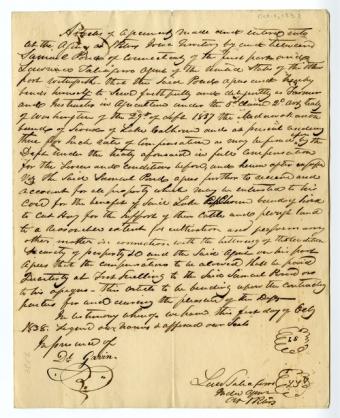 Articles of Agreement made and entered into
at the Agency St Peters Iowa Territory by and between
Samuel Pond of Connecticut of the first part and
Lawrence Taliaferro Agent of the United States of the other
part witnesseth that the said Pond agrees and hereby
binds himself to serve faithfully and diligently as Farmer
and Instructor in Agriculture under the 2d Article
of Washington of the 29th of Sept. 1837 the
bands of Sioux of Lake Calhoun and at present
there for such rate of compensation as may
Dept under the treaty aforesaid in full compensation
for the
the said Samuel Pond agrees further to receive and
account for all property which may be intrusted to his
care for the benefit of said Lake Calhoun band
to cut Hay for the support of their Cattle and plough land
to a reasonable extent for cultivation and perform any
other matter in connection with the
and the said Agent on his part
agrees that the compensation to be allowed shall be paid
quarterly at Fort Snelling to the said Samuel Pond or
to his assigns. This article to be binding upon the contracting
parties for and during the pleasure of the Dept
In testimony whereof we have this first day of Octr
1838. signed our names & affixed our Seals
In presence of
D. Gavin
L S
Law Taliaferro
Indn Agent
St Peters